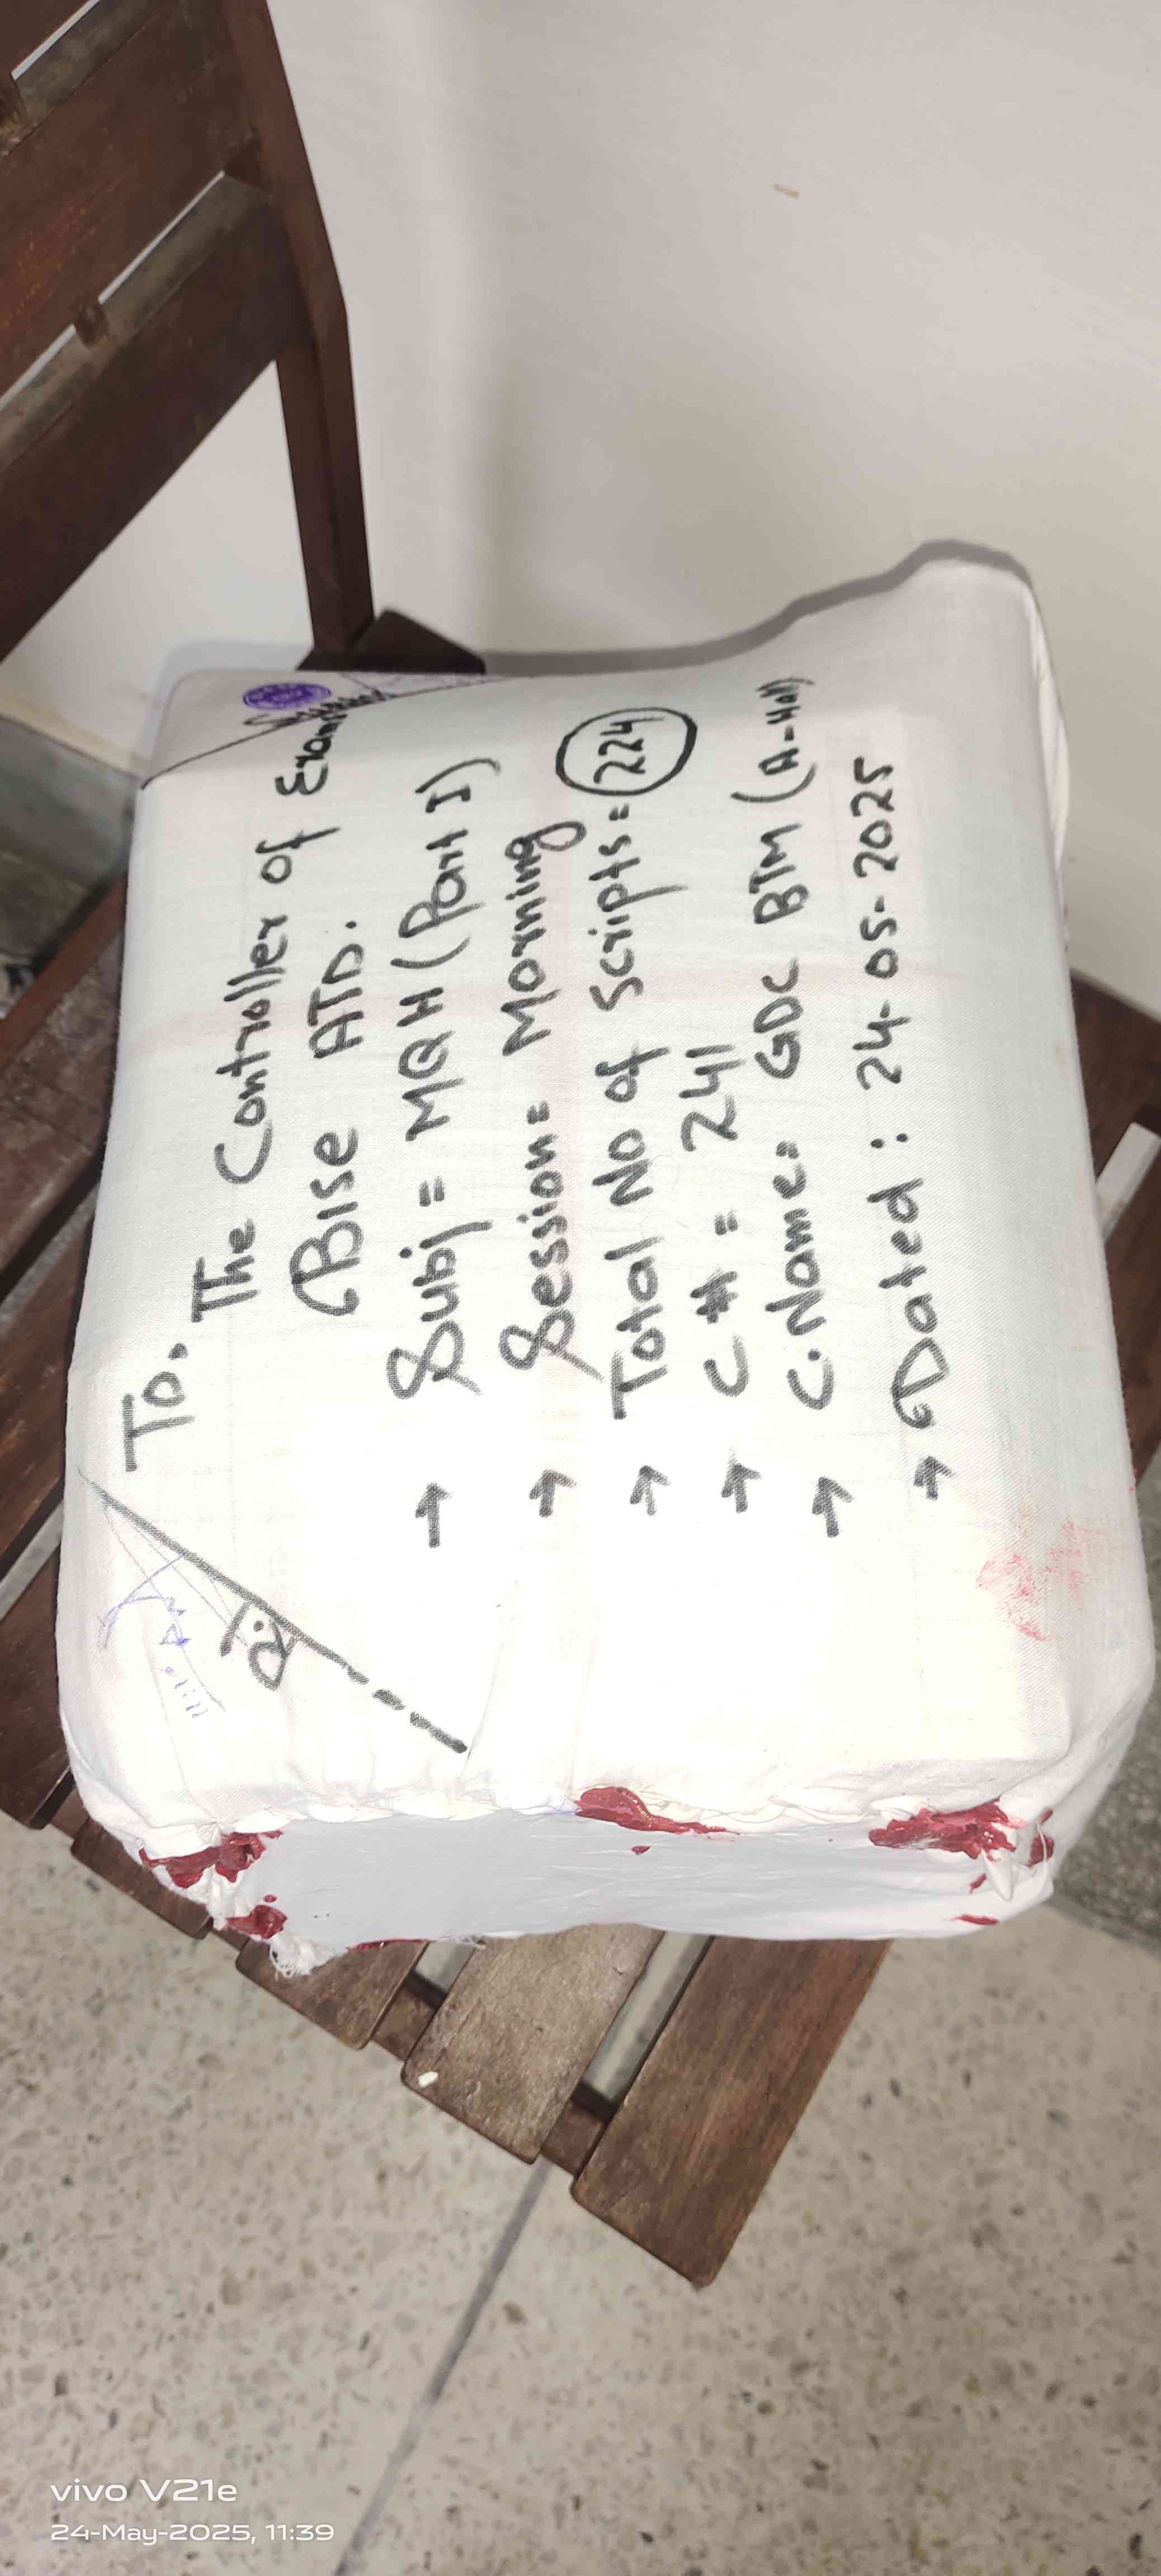 To.
The Controller of Exam
BISE ATD.
→ Subj = MQH (Part I)
→ Session = Morning
→ Total No of Scripts = 224
→ C # = 241
→ C.Name = GDC BTM (A-Hall)
→ Dated : 24-05-2025
R.I
vivo V21e
24-May-2025, 11:39